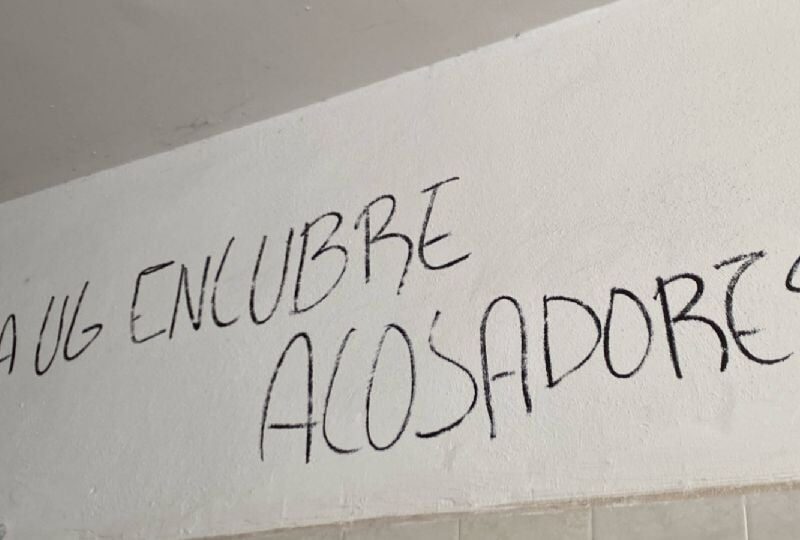 A UG ENCUBRE
ACOSADORES